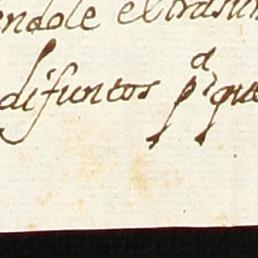 ndole el trasun
difuntos pª que